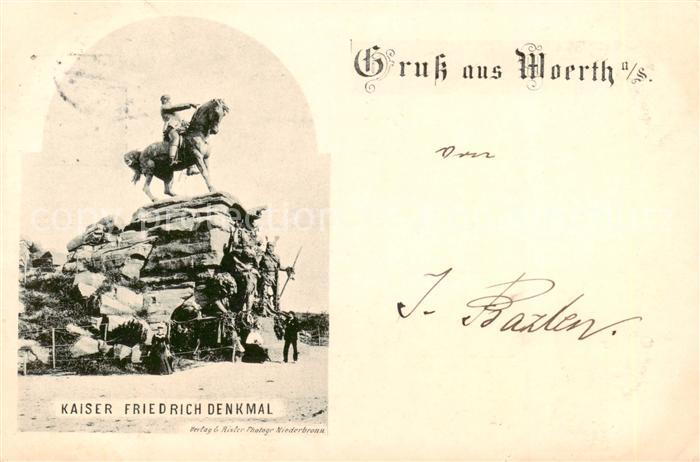 Gruß aus Woerth a/S.
von
J. Baxlen.
KAISER FRIEDRICH DENKMAL
Verlag G. Rixler Photogr Niederbronn